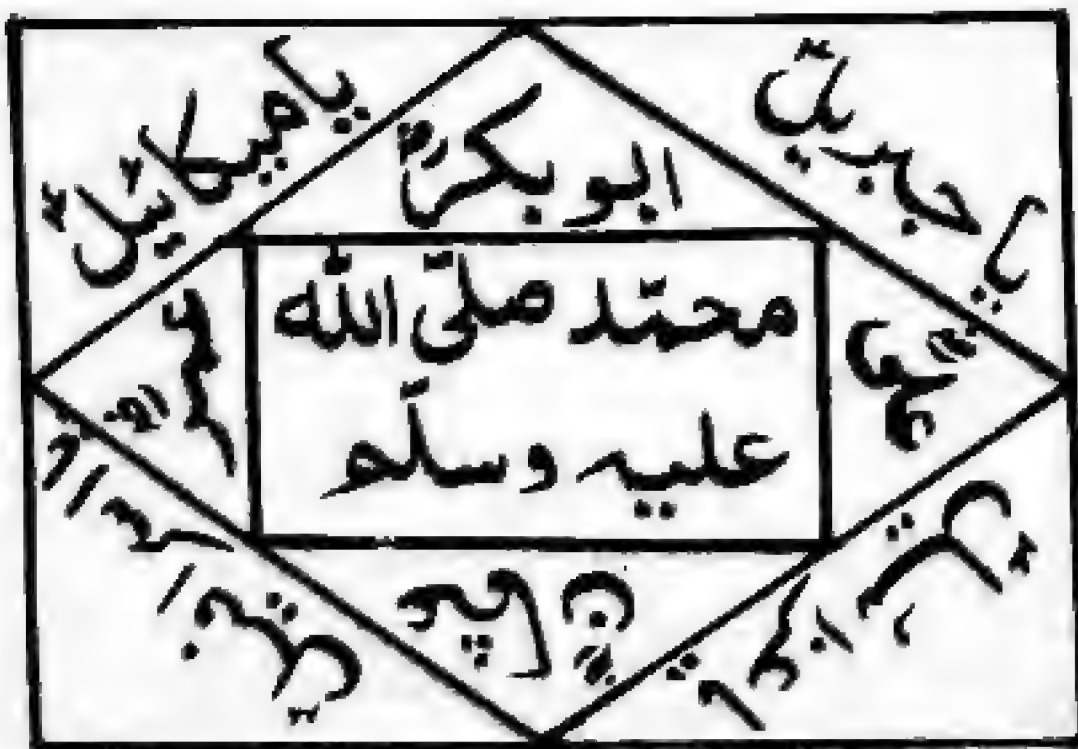 یا جبریلؑ
یا میکائیلؑ
ابو بکرؓ
محمّد صلّی اللہ
علیہ وسلّم
علیؓ
عمرؓ
عثمانؓ
یا عزرائیلؑ
یا اسرافیلؑ